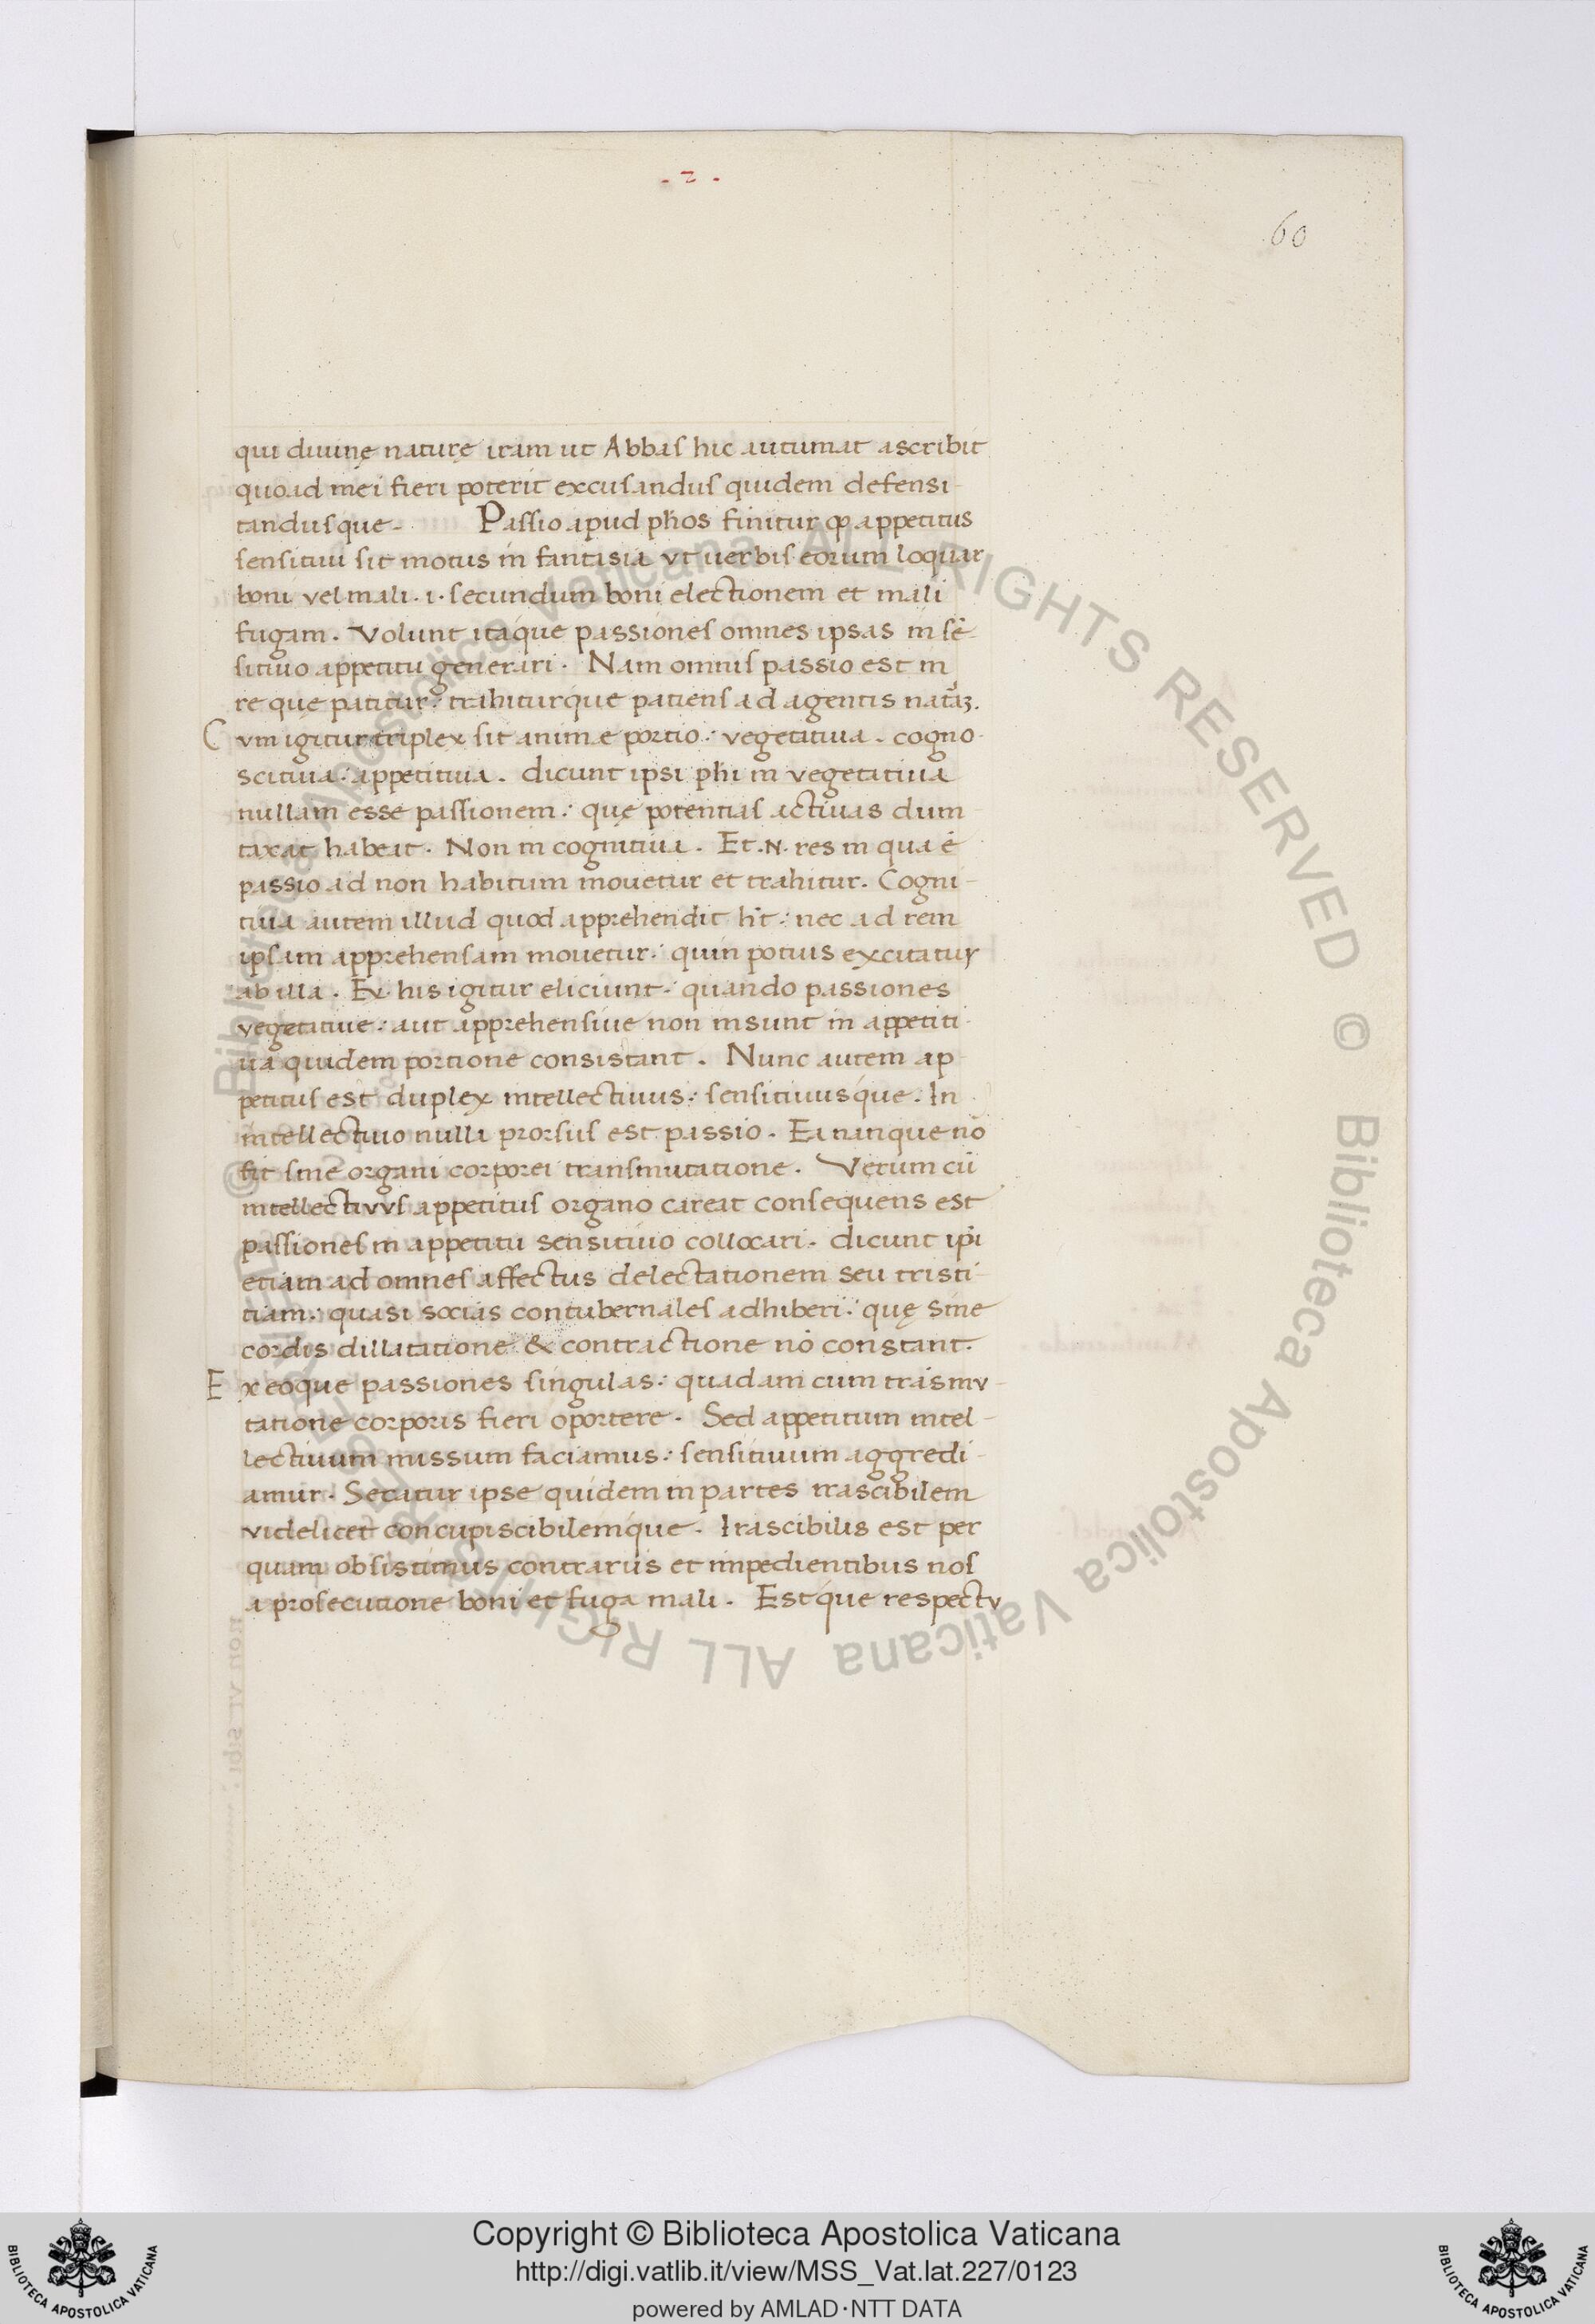 - 2 -
60
qui diuinę naturę iram ut Abbas hic autumat ascribit
quoad mei fieri poterit excusandus quidem defensi
tandusque. Passio apud phos finitur ꝙ appetitus
sensitiui sit motus in fantasia vt uerbis eorum loquar
boni vel mali .i. secundum boni electionem et mali
fugam. Volunt itaque passiones omnes ipsas in sē
sitiuo appetitu generari. Nam omnis passio est in
re quę patitur: trahiturque patiens ad agentis
Cvm igitur triplex sit animæ portio: vegetatiua. cogno
scitiua: appetitiua. dicunt ipsi phi in vegetatiua
nullam esse passionem: quę potentias actiuas dum
taxat habeat. Non in cognitiua. Et .N. res in qua ē
passio ad non habitum mouetur et trahitur. Cogni-
tiua autem illud quod apprehendit ht: nec ad rem
ipsam apprehensam mouetur: quin potius excitatur
ab illa. Ex his igitur eliciunt: quando passiones
vegetatiue: aut apprehensiue non insunt in appetiti
ua quidem portione consistant. Nunc autem ap
petitus est duplex intellectiuus: sensitiuusque. In
intellectiuo nulla prorsus est passio. Ea nanque nō
fit sine organi corporei transmutatione. Verum cū
intellectivvs appetitus organo careat consequens est
passiones in appetitu sensitiuo collocari. dicunt ipi
etiam ad omnes affectus delectationem seu tristi
tiam: quasi socias contubernales adhiberi: quę sine
cordis dillatatione & contractione nō constant.
Ex eoque passiones singulas: quadam cum trāsmv
tatione corporis fieri oportere. Sed appetitum intel-
lectiuum missum faciamus: sensitiuum aggredi
amur. Secatur ipse quidem in partes irascibilem
videlicet concupiscibilemque. Irascibilis est per
quam obsistimus contrariis et impedientibus nos
a prosecutione boni et fuga mali. Estque respectv
© Biblioteca Apostolica Vaticana ALL RIGHTS RESERVED © Biblioteca Apostolica Vaticana ALL RIGHTS RESERVED
Copyright © Biblioteca Apostolica Vaticana
http://digi.vatlib.it/view/MSS_Vat.lat.227/0123
powered by AMLAD·NTT DATA
BIBLIOTECA APOSTOLICA VATICANA
BIBLIOTECA APOSTOLICA VATICANA